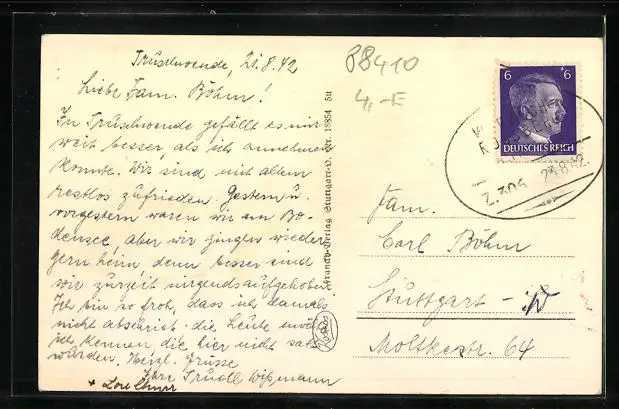 Trüschwende, 21.8.42
Liebe Fam. Böhm!
In Trüschwende gefällt es mir
weit besser, als ich annehmen
konnte. Wir sind mit allem
restlos zufrieden. Gestern u.
vorgestern waren wir am Bo-
densee, aber wir gingen wieder
gern heim denn besser sind
wir zurzeit nirgends aufgehoben
Ich bin so froh, dass ich damals
nicht abschrieb. die Leute
kennen die hier nicht satt
würden. Herzl. Grüsse
Ihre Trudl Wißmann
+ Lore
88410
4,-E
Franckh-Verlag Stuttgart-O. Nr. 18854 5u
6 6
DEUTSCHES REICH
Z.306 23.8.42
Fam.
Carl Böhm
Stuttgart - W
Moltkestr. 64